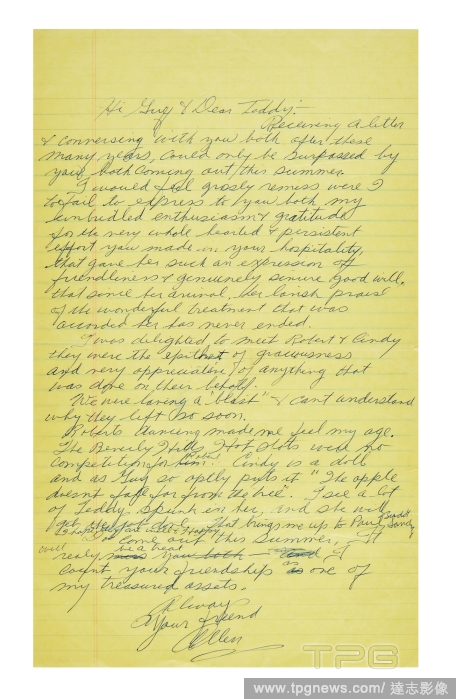 Hi Guy & Dear Teddy:—
Receiving a letter
& conversing with you both after these
many years, could only be surpassed by
you both coming out this summer.
I would feel grosly remiss were I
to fail to express to you both my
unbridled enthusiasm & gratitude
for the very whole hearted & persistent
effort you made in your hospitality,
that gave her such an expression of
friendliness & genuinely sincere good will,
that since her arrival, her lavish praise
of the wonderful treatment that was
accorded her has never ended.
I was delighted to meet Robert & Cindy
they were the epithet of graciousness
and very appreciative of anything that
was done on their behalf.
We were having a "blast" & can't understand
why they left so soon.
Roberts dancing made me feel my age.
The Beverly Hills Hot Shots were no
competition for him. Cindy is a doll
and as Guy so aptly puts it "The apple
doesn't fall far from the tree". I see a lot
of Teddy's spunk in her, and she will
get that brings me up to Paul Sandy
come out this summer, It
will be a treat
really you both — I
count your friendships as one of
my treasured assets.
Always
Your friend
Allen
TPG
www.tpgnews.com/達志影像